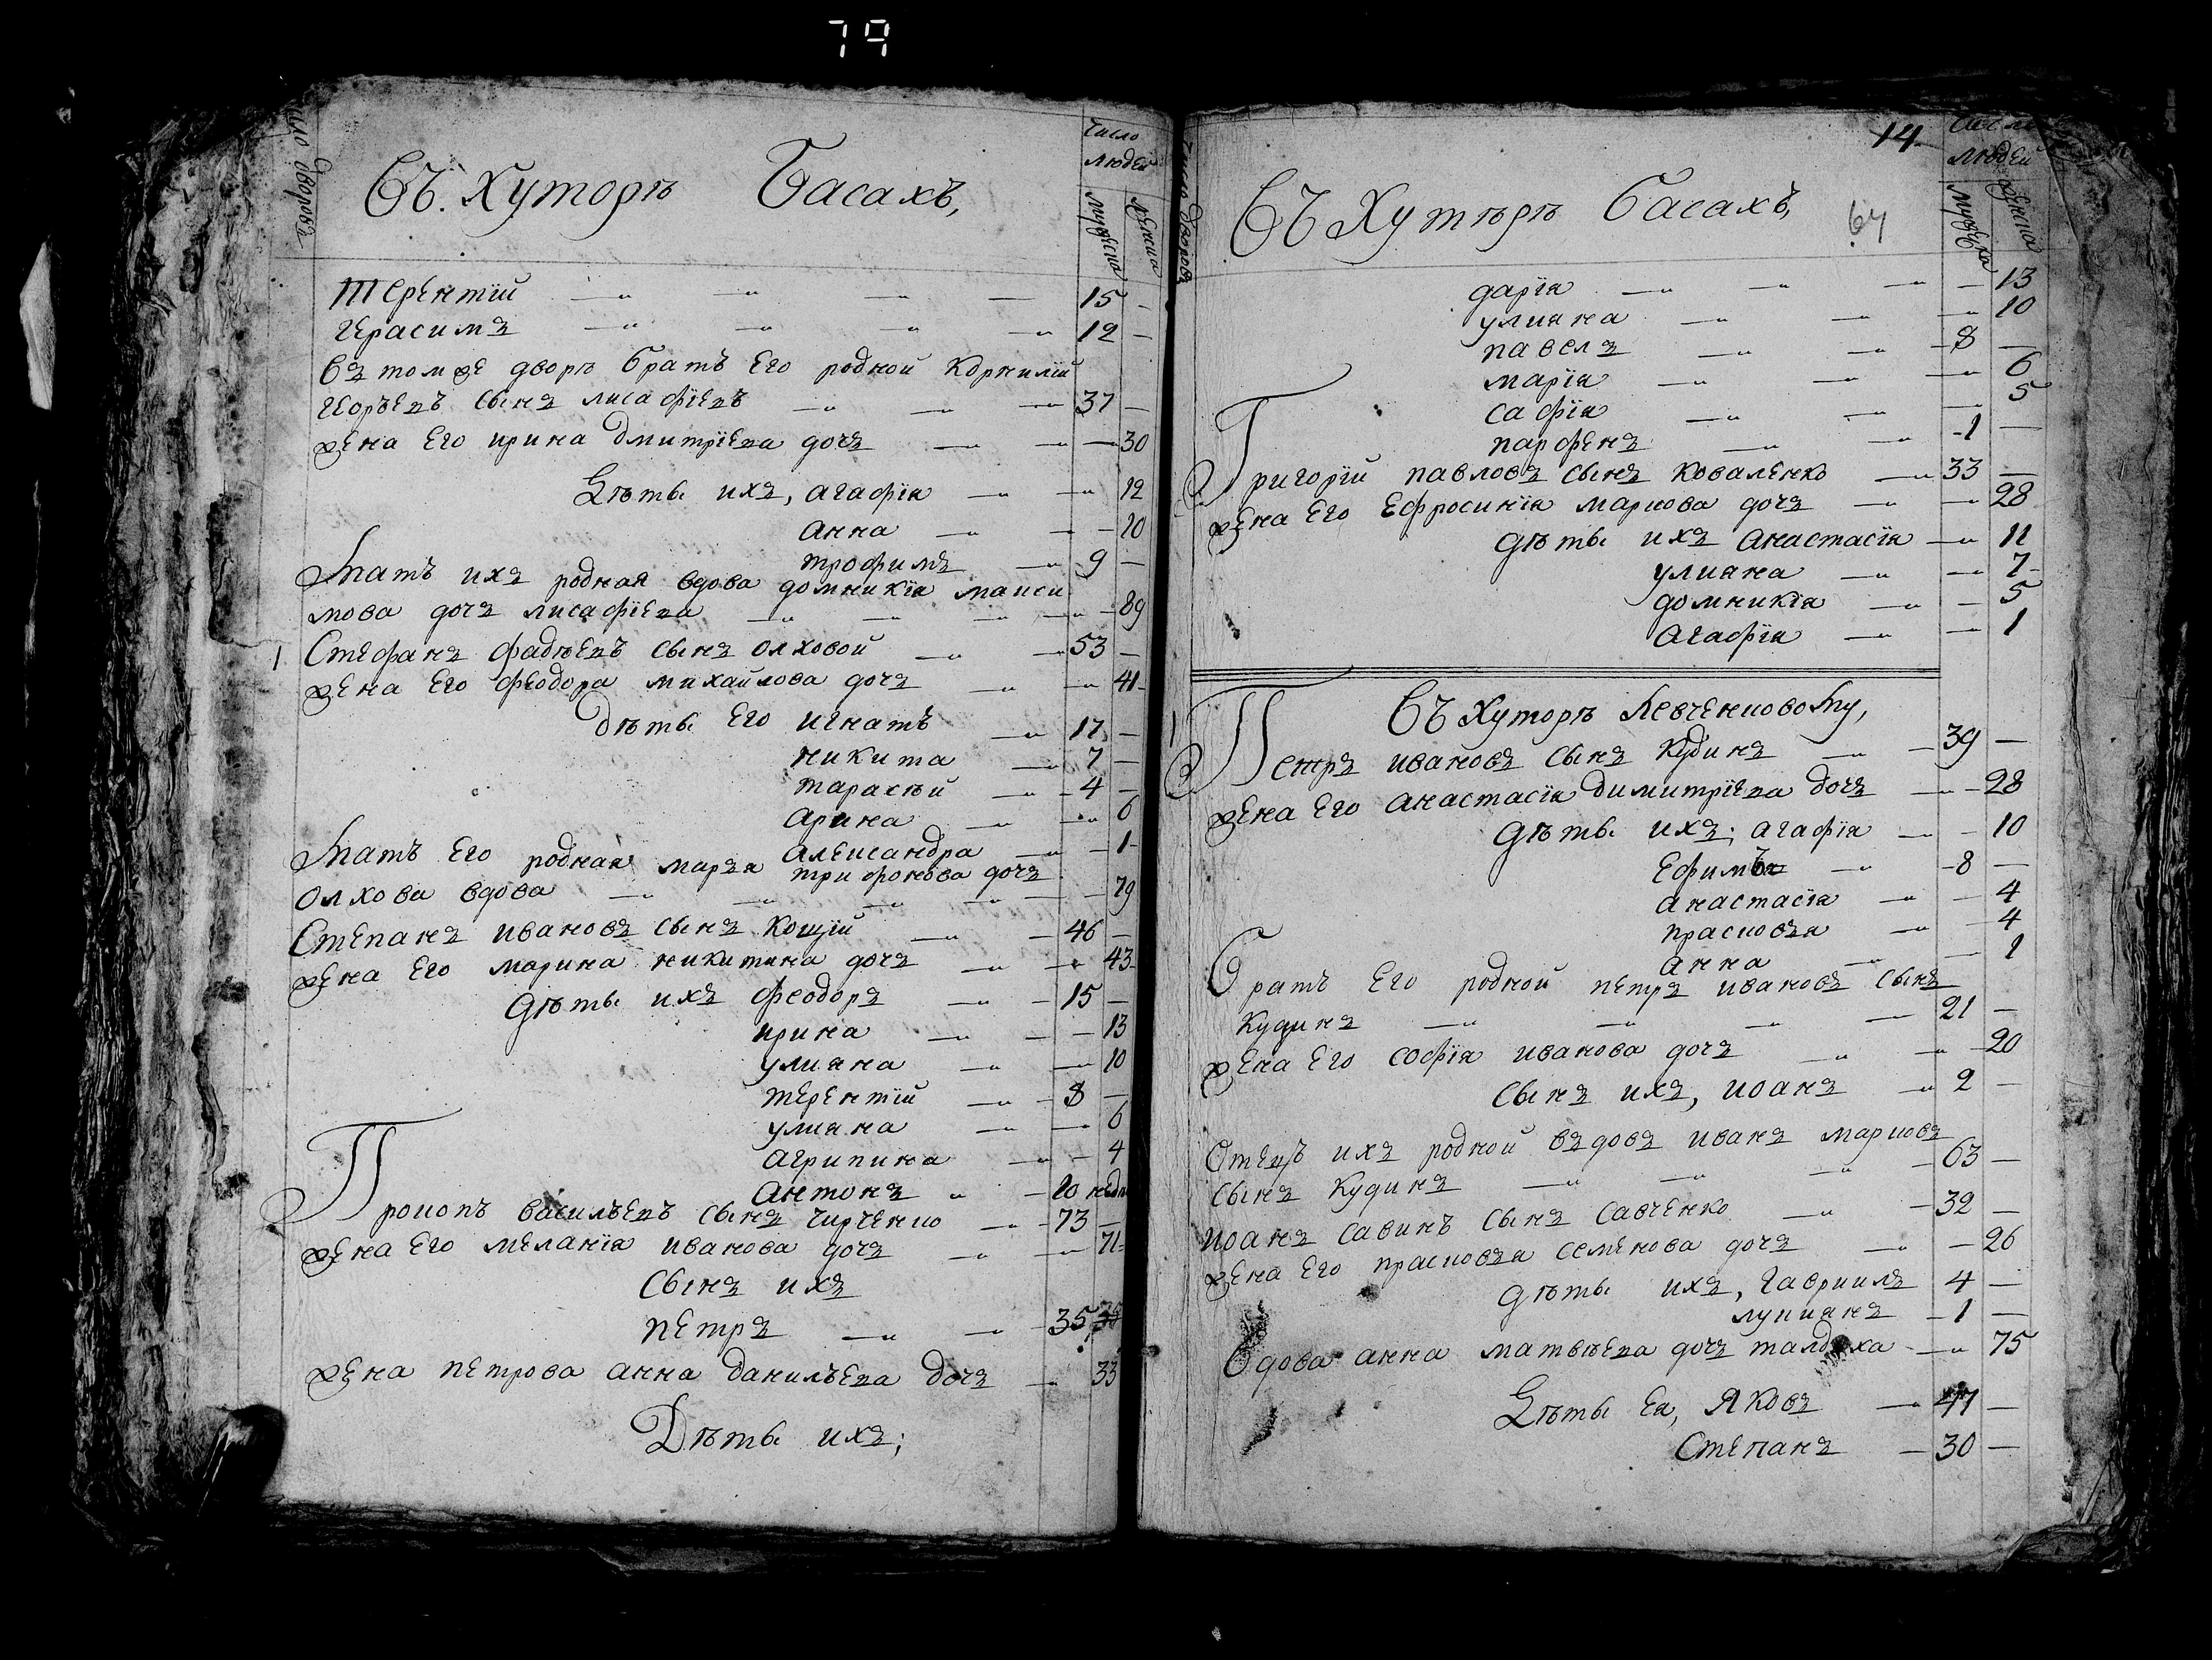 79
Число Дворовъ
Въ. Хуторѣ Басахъ,
Число
людей
мужеска
женска
Терентїй 15 –
герасимъ 12 –
въ томже дворѣ братъ Его родной Корнилїй
Игорьевъ сынъ лисафїевъ 37 –
жена Его ирина дмитрїева дочъ – 30
Дѣты ихъ, агафїя – 12
анна – 10
трофимъ 9 –
Мать ихъ родная вдова домникїя макси
мова дочъ лисафїева – 89
1 Стефанъ фадѣевъ сынъ олховой 53 –
жена Его феодора михайлова дочъ – 41
дѣты Его игнатъ 17 –
никита 7 –
тарахѣй 4 –
арина – 6
александра – 1
Мать Его родная марья трифонова дочъ
олхова вдова – 79
Степанъ ивановъ сынъ Коцїй 46 –
жена Его марина никитина дочъ – 43
дѣты ихъ феодоръ 15 –
ирина – 13
улияна – 10
терентїй 8 –
улияна – 6
агрипина – 4
антонъ 10 недѣ
Прокопъ васильевъ сынъ чирченко 73 –
жена Его меланїя иванова дочъ – 71
сынъ ихъ
петръ 35
жена петрова анна данильева дочъ 33
Дѣты ихъ;
Число дворовъ
14
Число
людей
мужеска
женска
Въ Хуторѣ Басахъ,
64
дарїя – 13
улияна – 10
павелъ 8 –
марїя – 6
сафїя – 5
парфенъ 1 –
Григорїй павловъ сынъ коваленко 33 –
жена Его Ефросинїя маркова дочъ – 28
дѣты ихъ анастасїя – 11
улияна – 7
домникїя – 5
агафїя – 1
Въ Хуторѣ Левченковому,
1
Петръ ивановъ сынъ Кудинъ 39 –
жена Его анастасїя димитрїева дочъ – 28
дѣты ихъ; агафїя – 10
Ефимъ 8 –
анастасїя – 4
прасковья – 4
анна – 1
Братъ Его родной петръ ивановъ сынъ
Кудинъ 21 –
жена Его софїя иванова дочъ – 20
сынъ ихъ, иоанъ 2 –
Отецъ ихъ родной въдовъ иванъ марковъ
сынъ Кудинъ 63 –
иоанъ савинъ сынъ савченко 32 –
жена Его прасковья семенова дочъ – 26
дѣты ихъ, гавриилъ 4 –
лукиянъ 1 –
Вдова анна матвѣева дочъ – 75
Дѣты Ея, Яковъ –
Степанъ 30 –